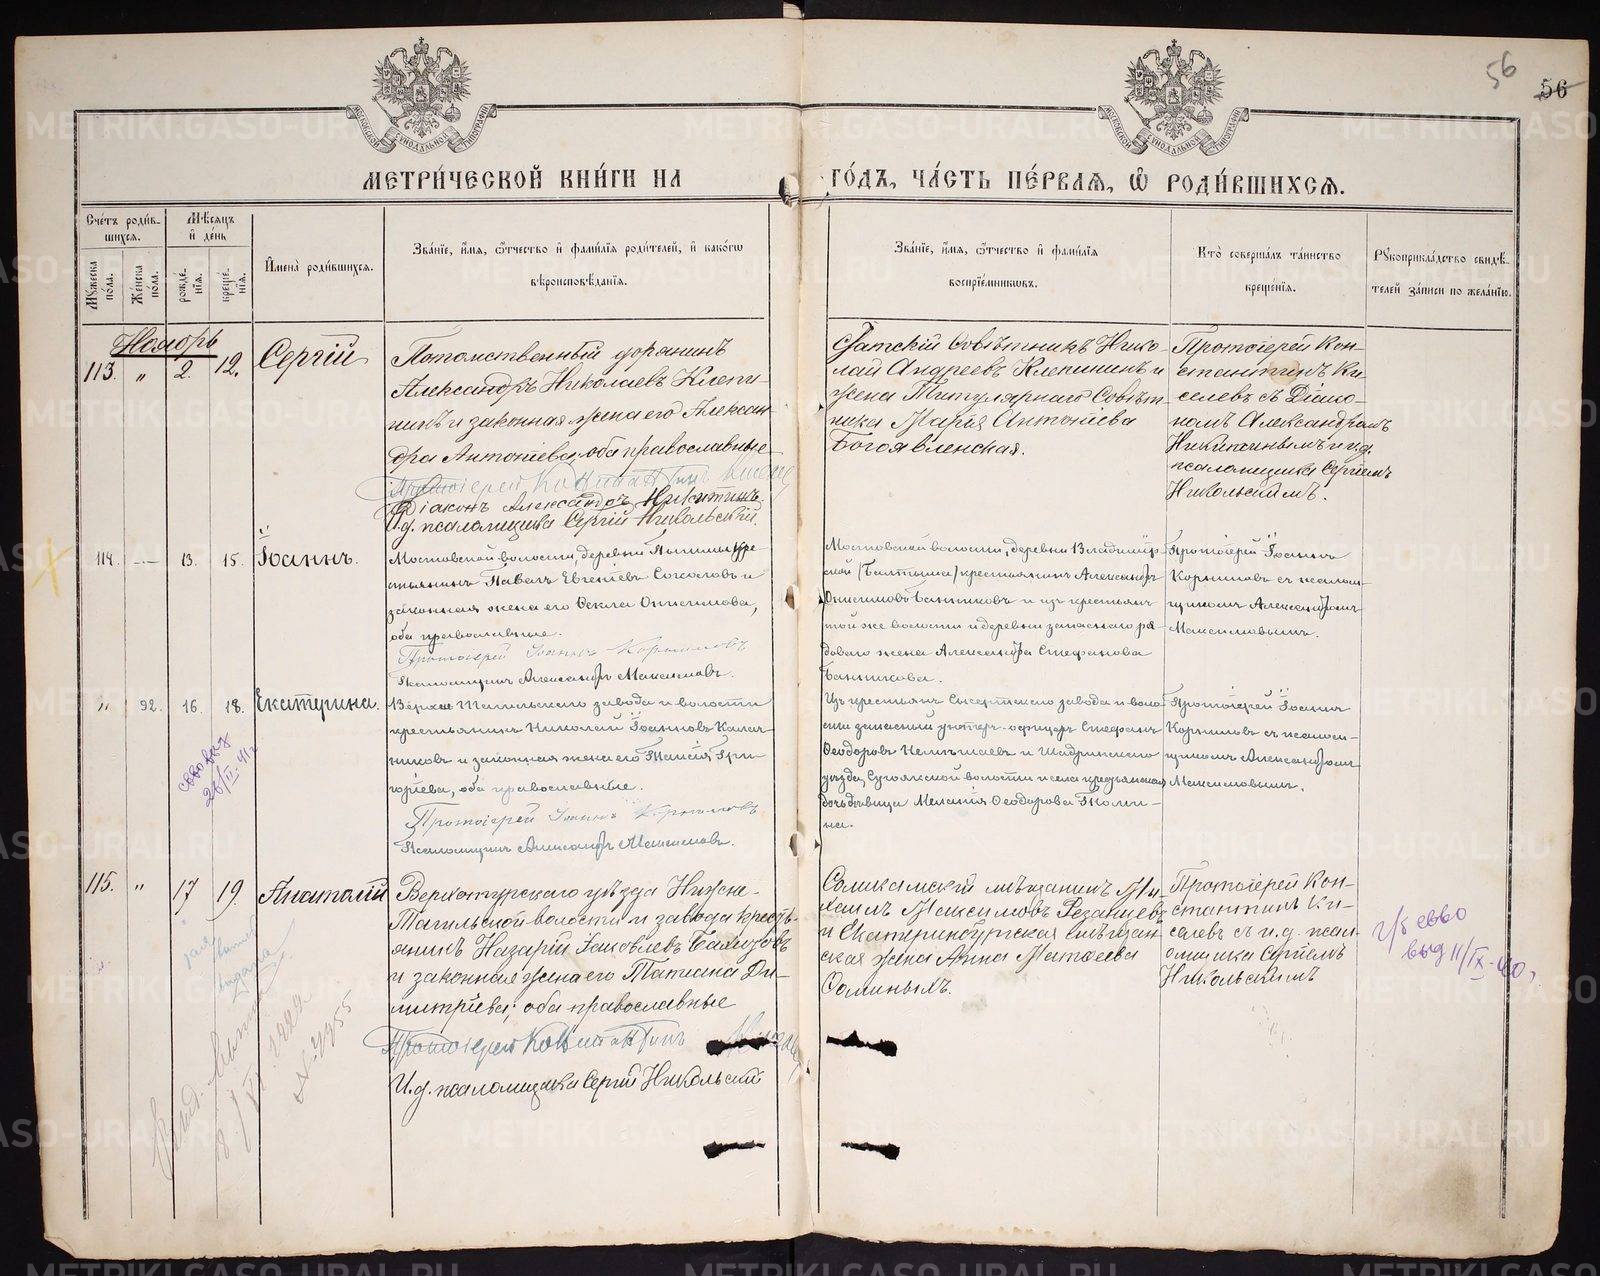 56
56
МОСКОВСКОЙ СѴНОДАЛЬНОЙ ТИПОГРАФІИ
МОСКОВСКОЙ СѴНОДАЛЬНОЙ ТИПОГРАФІИ
МЕТРИ́ЧЕСКОЙ КНИ́ГИ НА
ГО́ДЪ, ЧА́СТЬ ПЕ́РВАѦ, Ѡ҆ РОДИ́ВШИХСѦ.
Сче́тъ роди́в-
шихсѧ.
Мѣ́сѧцъ
и҆ де́нь
Мꙋ́жеска
по́ла.
Же́нска
по́ла.
рожде́-
нїѧ.
креще́-
нїѧ.
И҆мена̀ роди́вшихсѧ.
Зва́нїе, и҆́мѧ, ѻ҆́тчество и҆ фами́лїѧ роди́телей, и҆ како́гѡ
вѣроисповѣ́данїѧ.
Зва́нїе, и҆́мѧ, ѻ҆́тчество и҆ фами́лїѧ
воспрїе́мникѡвъ.
Кто̀ соверша́лъ та́инство
креще́нїѧ.
Рꙋкоприкла́дство свидѣ́-
телей за́писи по жела́нїю.
Ноябрь
113. " 2. 12. Сергій
Потомственный дворянинъ
Александръ Николаевъ Клепи-
нинъ и законная жена его Алексан
дра Антонiева, оба православные
Протоіерей Константинъ Киселев
Діаконъ Александръ Никитинъ.
И.д. псаломщика Сергій Никольскій.
Статскій Совѣтникъ Нико-
лай Андреевъ Клепининъ и
жена Титулярнаго Совѣт
ника Марія Антонiева
Богоявленская.
Протоіерей Кон-
стантинъ Ки-
селевъ съ Діако-
номъ Александромъ
Никитинымъ и и.д.
псаломщика Сергіемъ
Никольскимъ.
114. — 13. 15. Іоаннъ.
Мостовской волости, деревни Пышмы кре-
стьянинъ Павелъ Евгеніевъ Соколовъ и
законная жена его Ѳекла Онисимова,
оба православные.
Протоіерей Іоаннъ Корниловъ
Псаломщикъ Александръ Максимовъ.
Мостовской волости, деревни Владимір-
ской (Балтыма) крестьянинъ Александръ
Онисимовъ Банниковъ и изъ крестьянъ
той же волости и деревни запаснаго ря-
доваго жена Александра Стефанова
Банникова.
Протоіерей Іоаннъ
Корниловъ съ псалом-
щикомъ Александромъ
Максимовымъ.
" 92. 16. 18. Екатерина.
Верхне Тагильскаго завода и волости
крестьянинъ Николай Іоанновъ Калач-
никовъ и законная жена его Таисія Гри-
горіева, оба православные.
Протоіерей Іоаннъ Корниловъ
Псаломщикъ Александръ Максимовъ.
Изъ крестьянъ Сысертскаго завода и воло-
сти запасный унтеръ-офицеръ Стефанъ
Ѳеодоровъ Немытаевъ и Шадринскаго
уѣзда, Сугоякской волости и села крестьянская
дочь дѣвица Меланія Ѳеодорова
на.
Протоіерей Іоаннъ
Корниловъ съ псалом-
щикомъ Александромъ
Максимовымъ.
св-во выд
26/II-41г
115. " 17 19. Анатолій
Верхотурскаго уѣзда Нижне-
Тагильской волости и завода кресть-
янинъ Назарій Іаковлевъ
и законная жена его Татіана Ди-
митріева; оба православные
Протоіерей Константинъ Киселевъ
И.д. псаломщика Сергій Никольскій
Соликамскій мѣщанинъ Ми-
хаилъ Максимовъ Резанцевъ
и Екатеринбургская мѣщан
ская жена Анна Матвеева
Соминыхъ.
Протоіерей Кон-
стантинъ Ки-
селевъ съ и.д. псал-
омщика Сергіемъ
Никольскимъ
св-во
выд 11/IX-40г
выдана